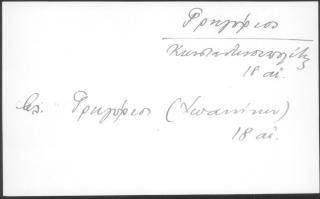 Γρηγόριος
Κωνσταντινουπολίτης
18 αἰ.
βλ. Γρηγόριος (Ἰωαννίνων)
18 αἰ.